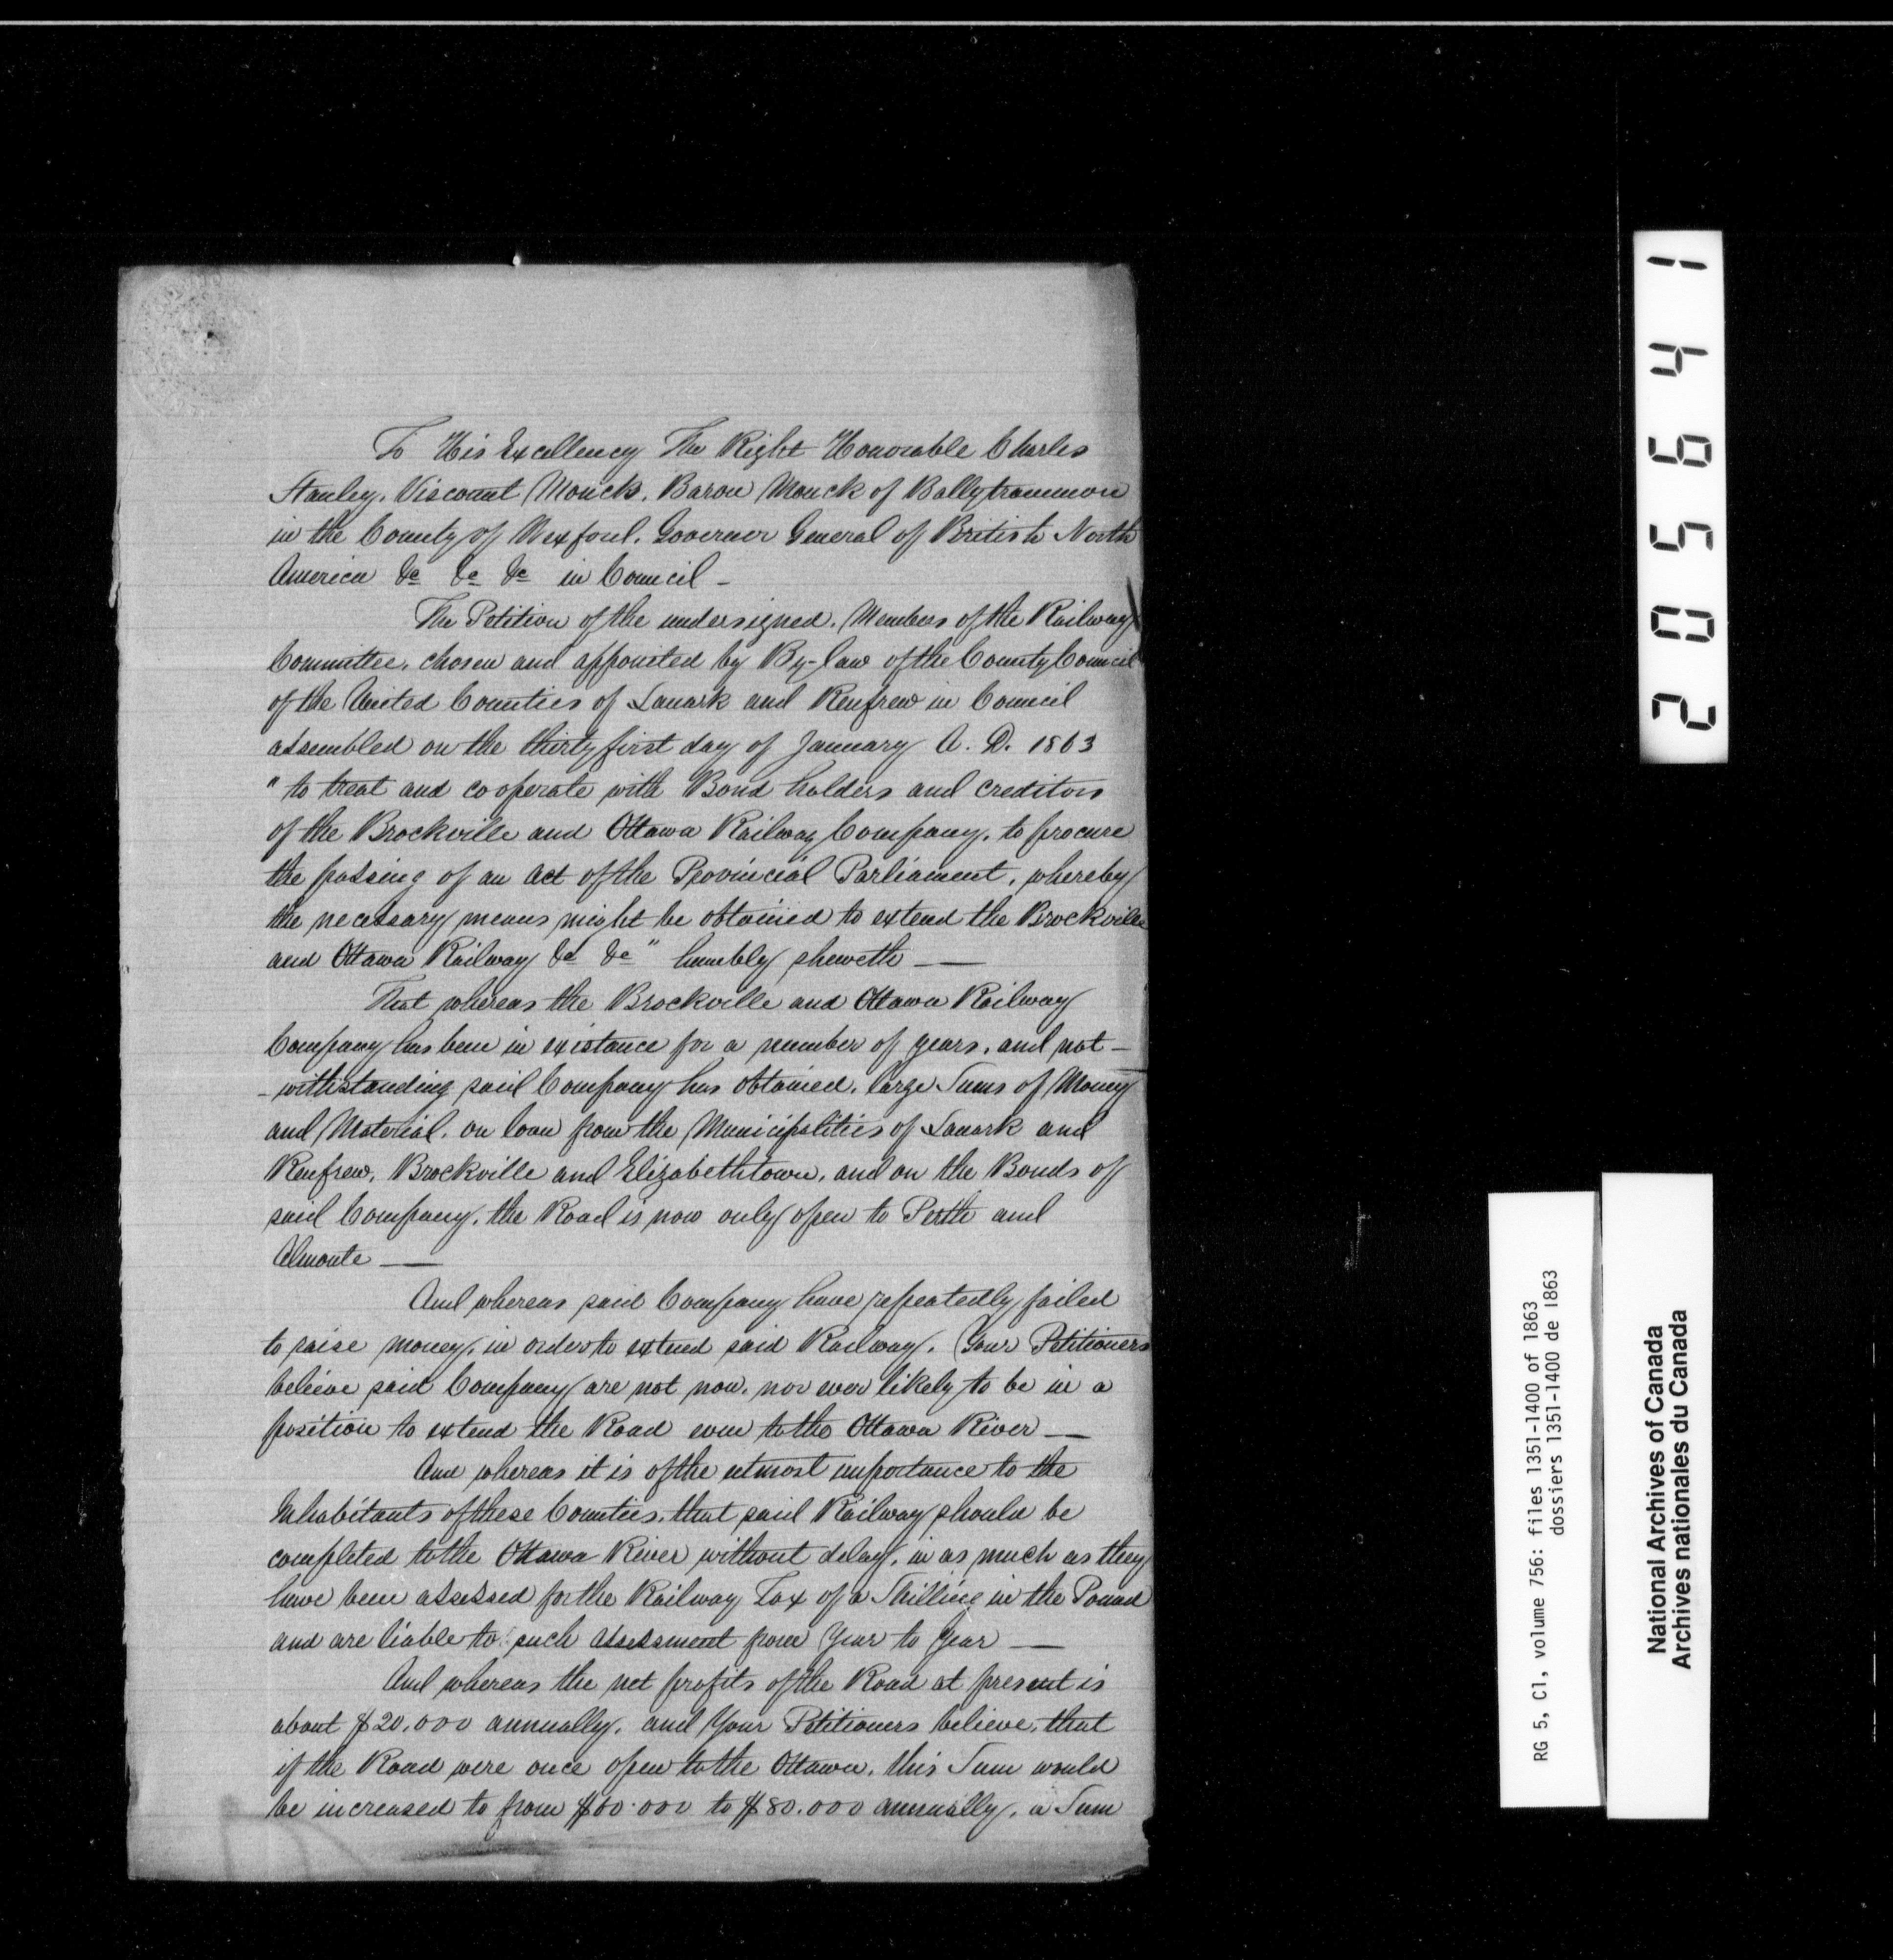 To His Excellency The Right Honorable Charles
Stanley, Viscount Monck, Baron Monck of Ballytrammon
in the County of Wexford, Governor General of British North
America &c &c &c in Council —
The Petition of the undersigned, Members of the Railway
Committee, chosen and appointed by By-law of the County Council
of the United Counties of Lanark and Renfrew in Council
assembled on the thirty first day of January A. D. 1863
"to treat and cooperate with Bond holders and creditors
of the Brockville and Ottawa Railway Company, to procure
the passing of an act of the Provincial Parliament, whereby
the necessary means might be obtained to extend the Brockville
and Ottawa Railway &c &c" humbly sheweth —
That whereas the Brockville and Ottawa Railway
Company has been in existance for a number of years, and not-
-withstanding said Company has obtained, large Sums of Money
and Material, on loan from the Municipalities of Lanark and
Renfrew, Brockville and Elizabethtown, and on the Bonds of
said Company, the Road is now only open to Perth and
Almonte —
And whereas said Company have repeatedly failed
to raise money, in order to extend said Railway, Your Petitioners
believe said Company are not now, nor ever likely to be in a
position to extend the Road even to the Ottawa River —
And whereas it is of the utmost importance to the
Inhabitants of these Counties, that said Railway should be
completed to the Ottawa River without delay, in as much as they
have been assessed for the Railway Tax of a Shilling in the Pound
and are liable to such assessment from Year to Year —
And whereas the net profits of the Road at present is
about $20,000 annually, and Your Petitioners believe, that
if the Road were once open to the Ottawa, this Sum would
be increased to from $60.000 to $80.000 annually, a Sum
205641
RG 5, C1, volume 756: files 1351-1400 of 1863
dossiers 1351-1400 de 1863
National Archives of Canada
Archives nationales du Canada